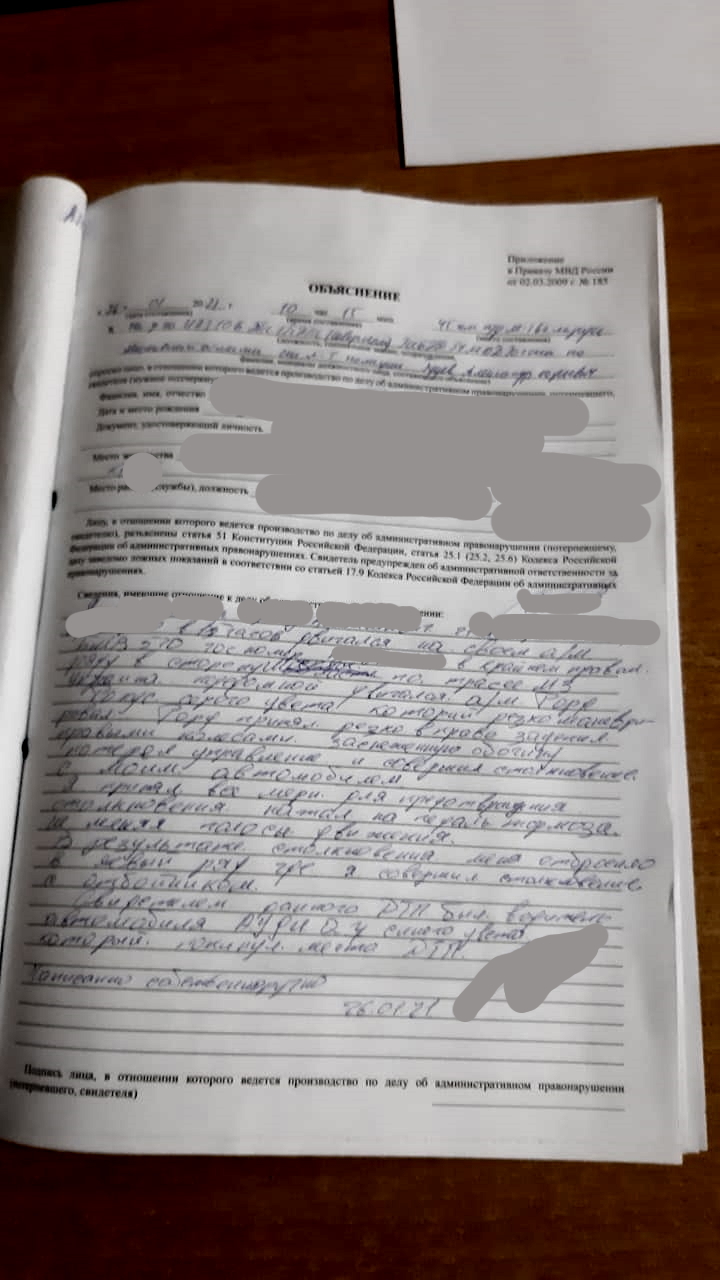 Приложение
к Приказу МВД России
от 02.03.2009 г. № 185
ОБЪЯСНЕНИЕ
« 26 » 01 20 21 г. 10 час 15 мин.
(дата составления) (время составления) (место составления)
(должность, специальное звание, подразделение
фамилия, инициалы должностного лица, составившего объяснение)
опросил лицо, в отношении которого ведется производство по делу об административном правонарушении, потерпевшего,
свидетеля (нужное подчеркнуть)
Фамилия, имя, отчество
Дата и место рождения
Документ, удостоверяющий личность
Место
Место службы), должность
Лицу, в отношении которого ведется производство по делу об административном правонарушении (потерпевшему,
свидетелю), разъяснены статья 51 Конституции Российской Федерации, статья 25.1 (25.2, 25.6) Кодекса Российской
Федерации об административных правонарушениях. Свидетель предупрежден об административной ответственности за
дачу заведомо ложных показаний в соответствии со статьей 17.9 Кодекса Российской Федерации об административных
правонарушениях.
Сведения, имеющие отношение к делу об
в 13 часов двигался на своем а/м
БМВ 520 гос номер в крайнем правом
ряду в сторону по трассе М3
Украина передомной двигался а/м. Форд
Фокус серого цвета который резко маневри-
ровал. Форд принял резко вправо зацепив
правыми колесами заснеженную обочину
потерял управление и совершил столкновение
с моим автомобилем.
Я принял все меры для предотвращения
столкновения нажал на педаль тормоза.
не меняя полосы движения.
В результате столкновения меня отбросило
в левый ряд где я совершил столкновение
с отбойником.
Свидетелем данного ДТП был водитель
автомобиля АУДИ синего цвета
который покинул место ДТП.
Написанно собственноручно
26.01.21
Подпись лица, в отношении которого ведется производство по делу об административном правонарушении
(потерпевшего, свидетеля)